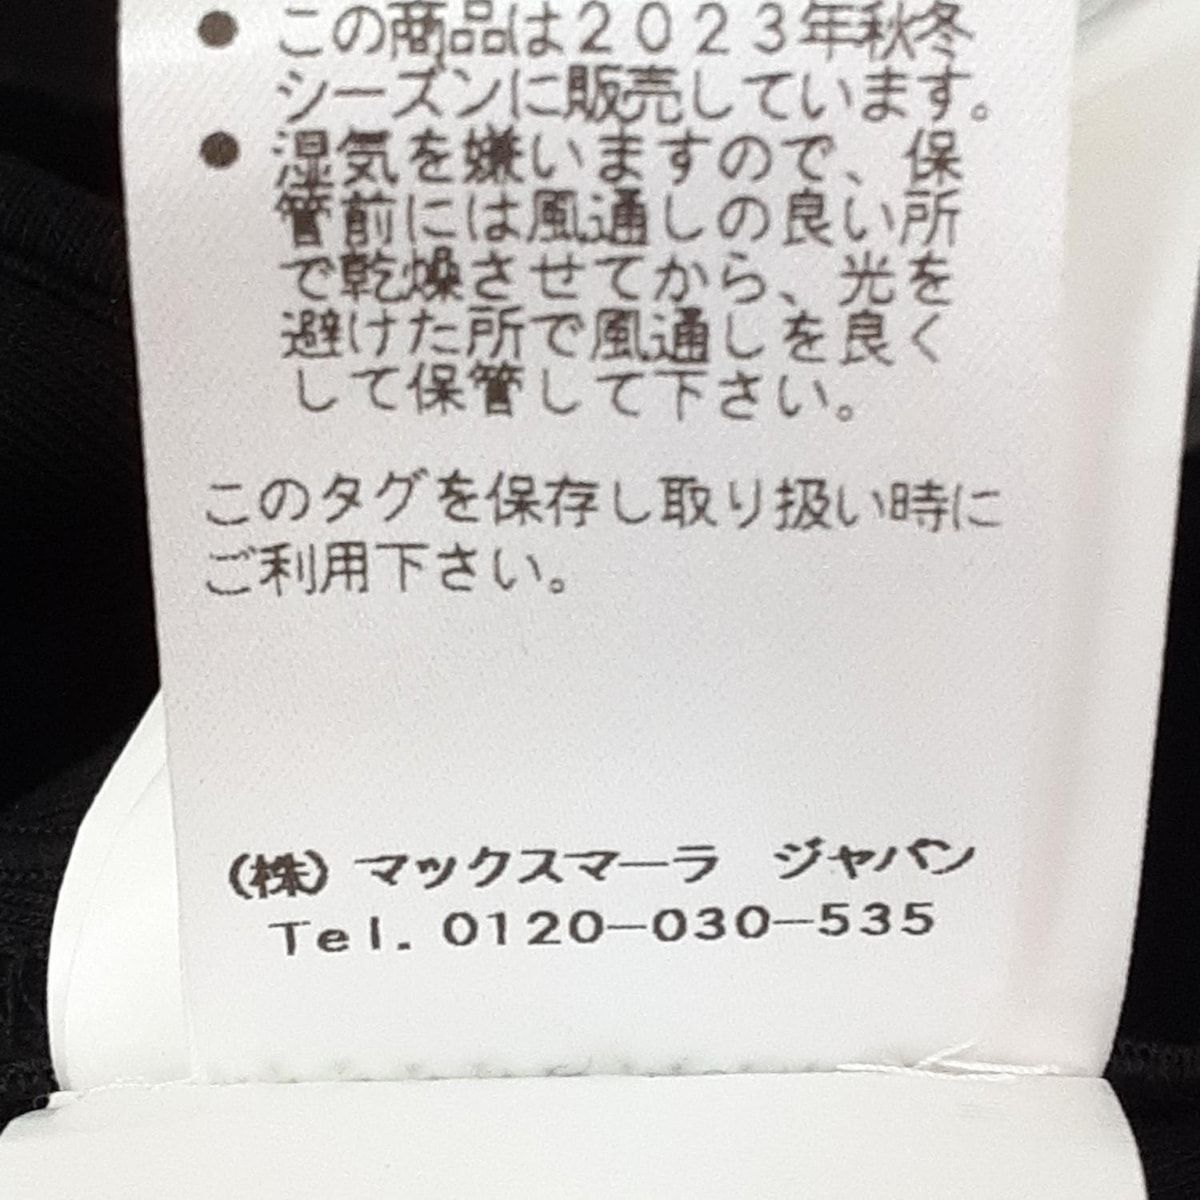 ● この商品は２０２３年秋冬
シーズンに販売しています。
● 湿気を嫌いますので、保
管前には風通しの良い所
で乾燥させてから、光を
避けた所で風通しを良く
して保管して下さい。
このタグを保存し取り扱い時に
ご利用下さい。
(株) マックスマーラ ジャパン
Tel. 0120-030-535